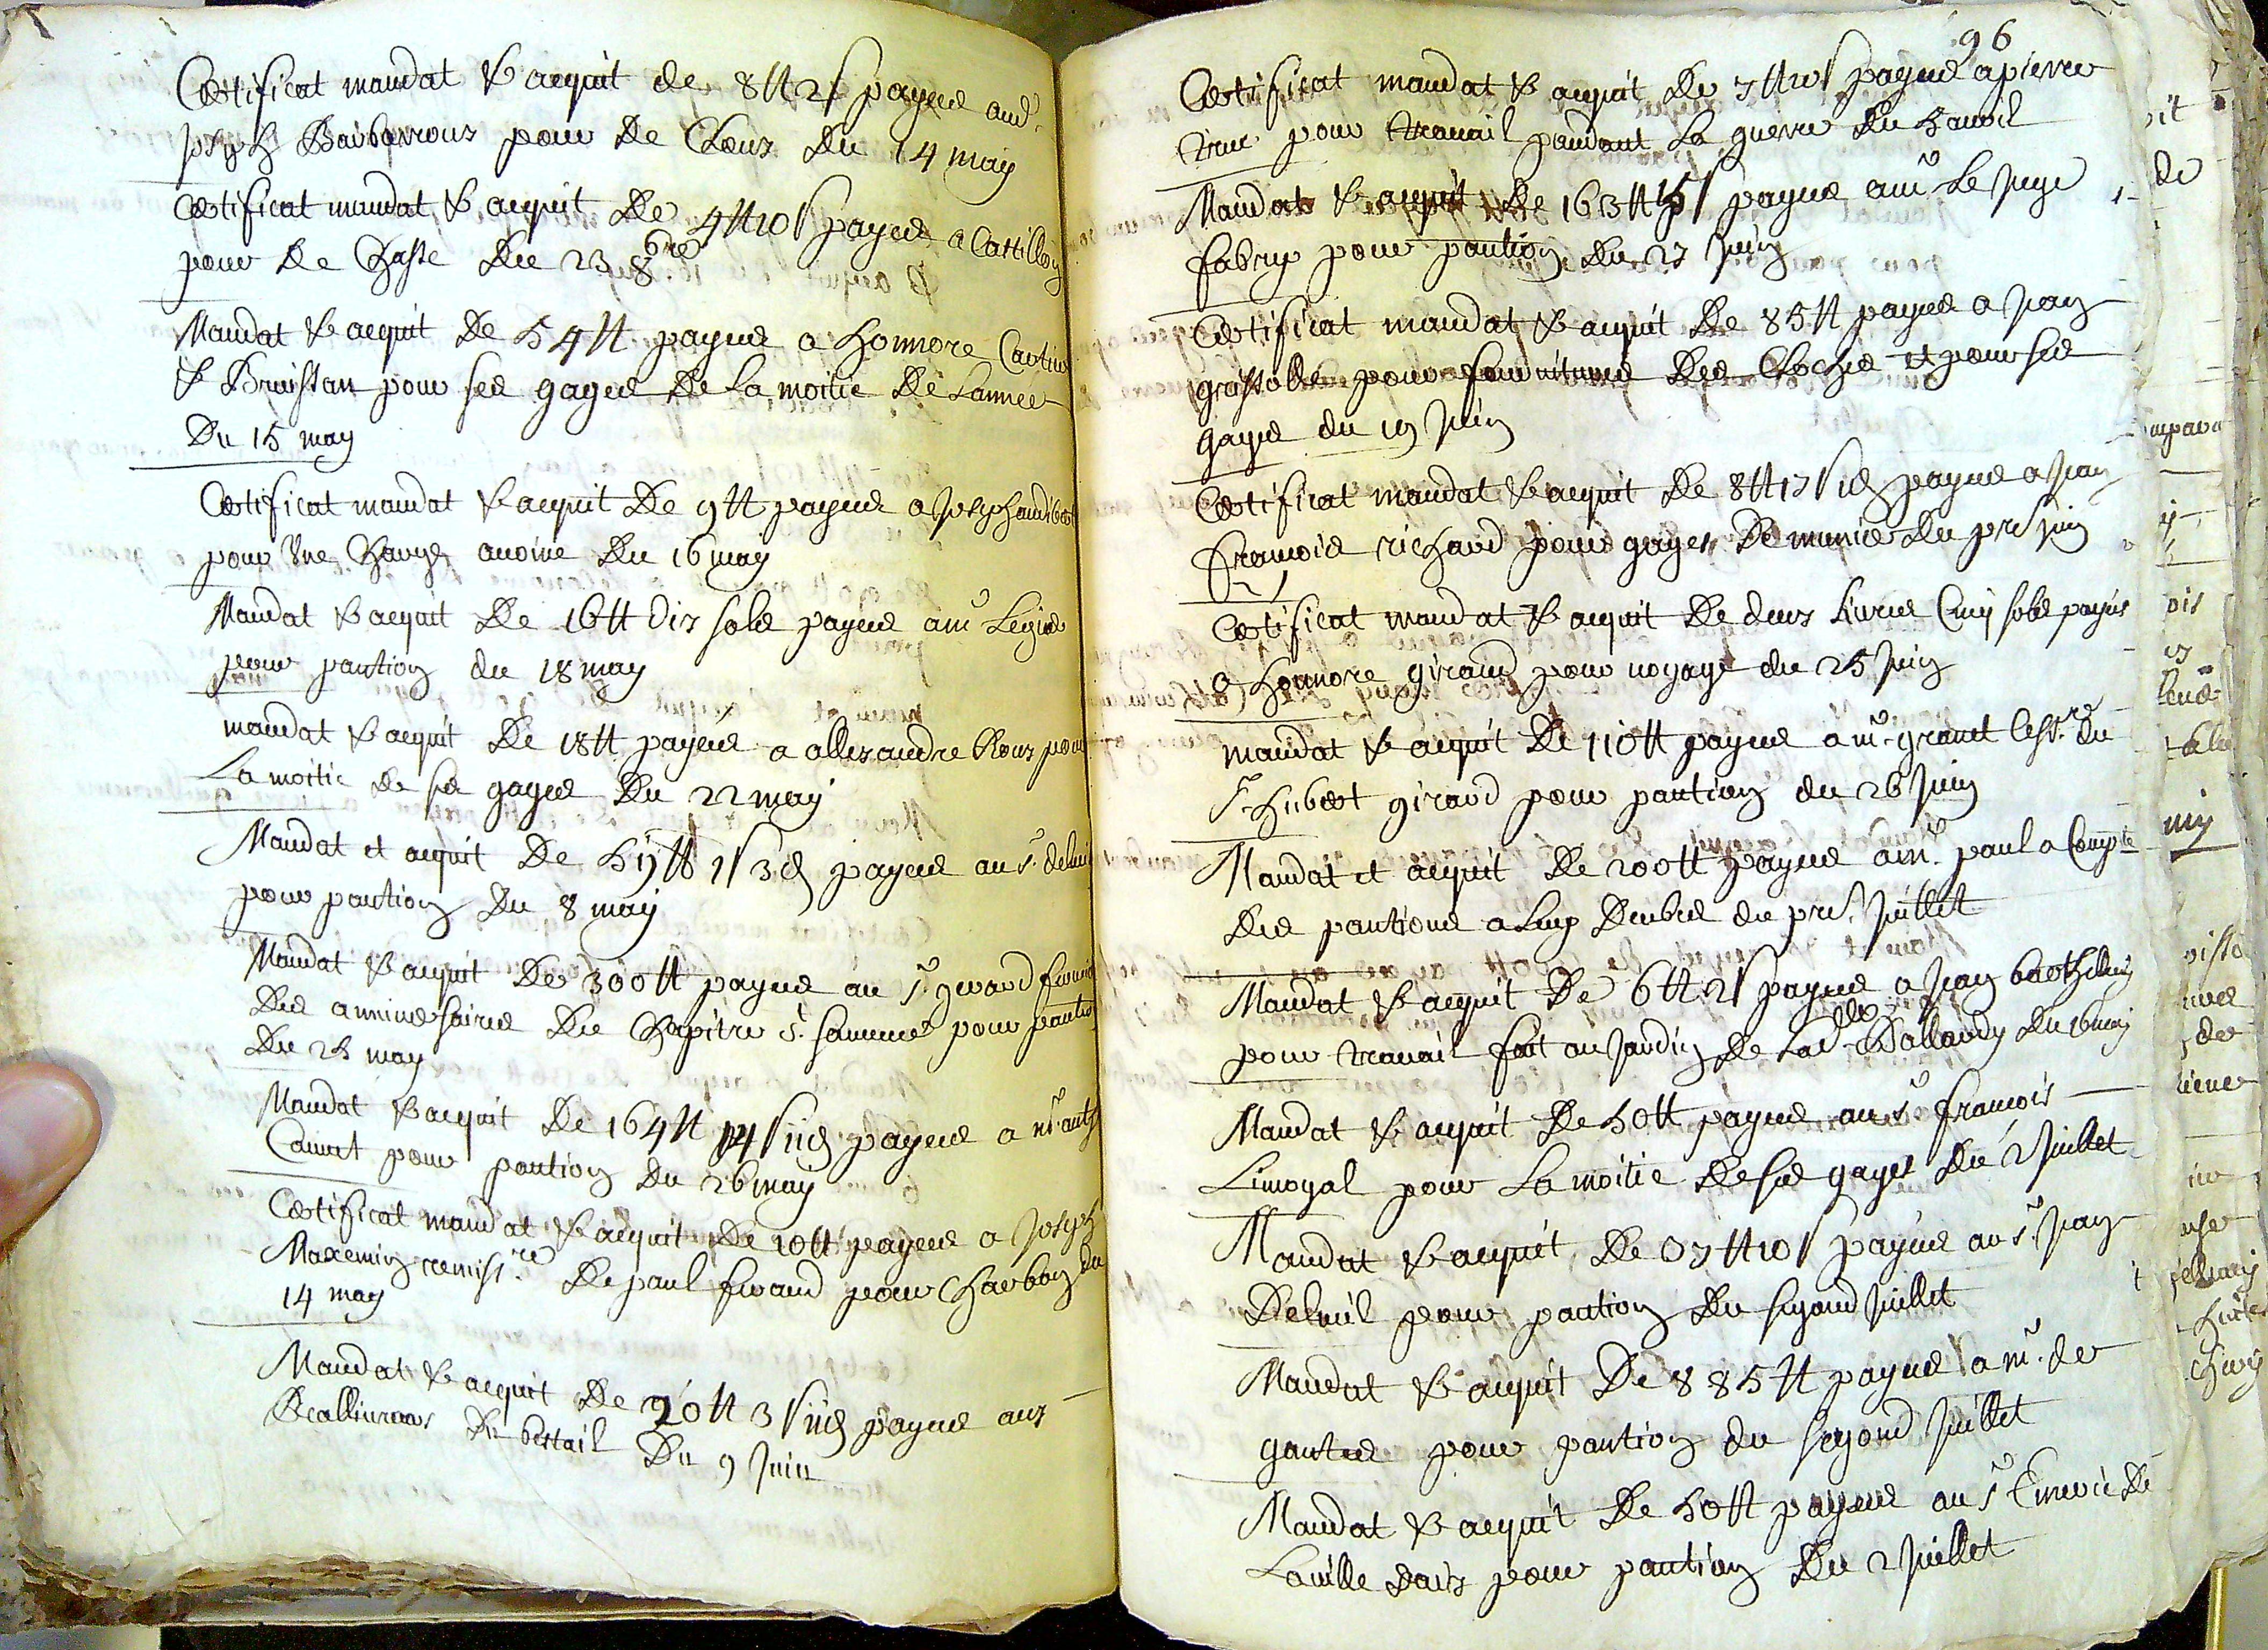 Certificat mandat & acquit de 8tt 2s payees aud.
Joseph Barbarrous pour De Chous Du 14 may
Certificat mandat & acquit De 4tt 10s payees a Castillon
pour De Chasse Du 23 8bre
Mandat & acquit De 54tt payees a honnore Cartier
& Bruissan pour ses gages De la moitie De Lannee
Du 15 may
Certificat mandat & acquit De 9tt payees a Joseph audibert
pour Une Charge avoine Du 16 may
Mandat & acquit De 16tt Dix sols payees a mr
pour pantion du 18 may
mandat & acquit De 18tt payees a allexandre Roux pour
La moitie de ses gages Du 22 may
Mandat et acquit De 59tt 1s 3d payees au sr deluil
pour pantion Du 8 may
Mandat & acquit De 300tt payees au sr girard
Des anniversaires Du Chapitre St. Sauveur pour pantion
Du 25 may
Mandat & acquit De 164tt 14s 11d payees a mr anth
Cannat pour pantion Du 26 may
Certificat mandat & acquit De 10tt payees a Joseph
Maxemin remissre De paul fwaud pour Charbon du
14 may
Mandat & acquit De 20tt 3s 11d payees aux
Du bestail Du 9 Juin
96
Certificat mandat & acquit De 7tt 10s payees a pierre
truc pour travail pandant La guerre Du 5 avril
Mandat & acquit De 163tt 15s payees a mr Le Juge
fabry pour pantion Du 27 Juin
Certificat mandat & acquit De 85tt payees a Jean
grassolle pour fournitures Des Cloches et pour ses
gages du 19 Juin
Certificat mandat & acquit De 8tt 17s 1d payees a Jean
francois richard pour gages De Du pr Juin
Certificat mandat & acquit De deux Livres Cinq sols payes
a honnore giraud pour voyage du 25 Juin
mandat & acquit De 110tt payees a mr granet Cessre du
Sr hubert giraud pour pantion du 26 Juin
Mandat et acquit De 200tt payees a mr paul a Compte
Des pantions a Luy Deubes du pr. Juillet
Mandat & acquit De 6tt 2s payees a Jean barthelemy
pour travail fait au Jardin De Lad. Dlle Ballardy Du 16 may
Mandat & acquit De 50tt payees au sr francois
Limoyal pour La moitie De ses gages Du 2 Juillet
Mandat & acquit De 37tt 10s payees au sr. Jean
Deluil pour pantion Du segond Juillet
Mandat & acquit De 885tt payees a mr. de
gantes pour pantion du segond Juillet
Mandat & acquit De 50tt payees au sr De
Laville Daix pour pantion Du 2 Juillet